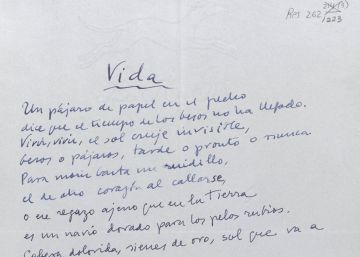 Res 262
/223
Vida
Un pájaro de papel en el pecho
dice que el tiempo de los besos no ha llegado.
Vivir, vivir, el sol cruje invisible,
besos o pájaros, tarde o pronto o nunca
Para morir basta un ruidillo,
el de otro corazón al callarse,
o ese regazo ajeno que en la tierra
es un navío dorado para los pelos rubios.
Cabeza dolorida, sienes de oro, sol que va a